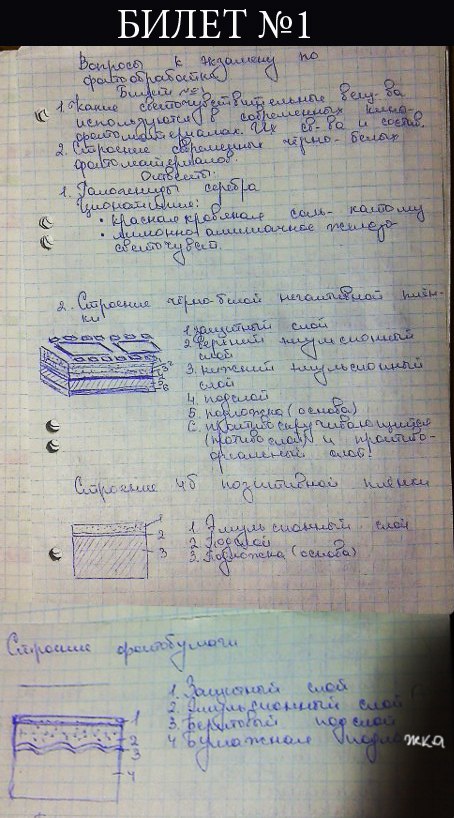 БИЛЕТ №1
Вопросы к экзамену по
фотообработке
Билет №1
1. Какие светочувствительные вещ-ва
используются в современных кино-
фотоматериалах. Их св-ва и состав
2. Строение современных чёрно-белых
фотоматериалов
Ответы:
1. Галогениды серебра
Цианотипия:
• красная кровяная соль
• лимонно аммиачное железо
светочувст.
2. Строение чёрно-белой негативной плён-
ки
1. защитный слой
2. верхний эмульсионный
слой
3. нижний эмульсионный
слой
4. подслой
5. подложка (основа)
6. противоскручивающийся
(противослой) и противо-
ореольный слой.
Строение чб позитивной плёнки
1
2
3
1. Эмульсионный слой
2. Подслой
3. Подложка (основа)
Строение фотобумаги
1. Защитный слой
2. Эмульсионный слой
3. Баритовый подслой
4. Бумажная подложка
1
2
3
4